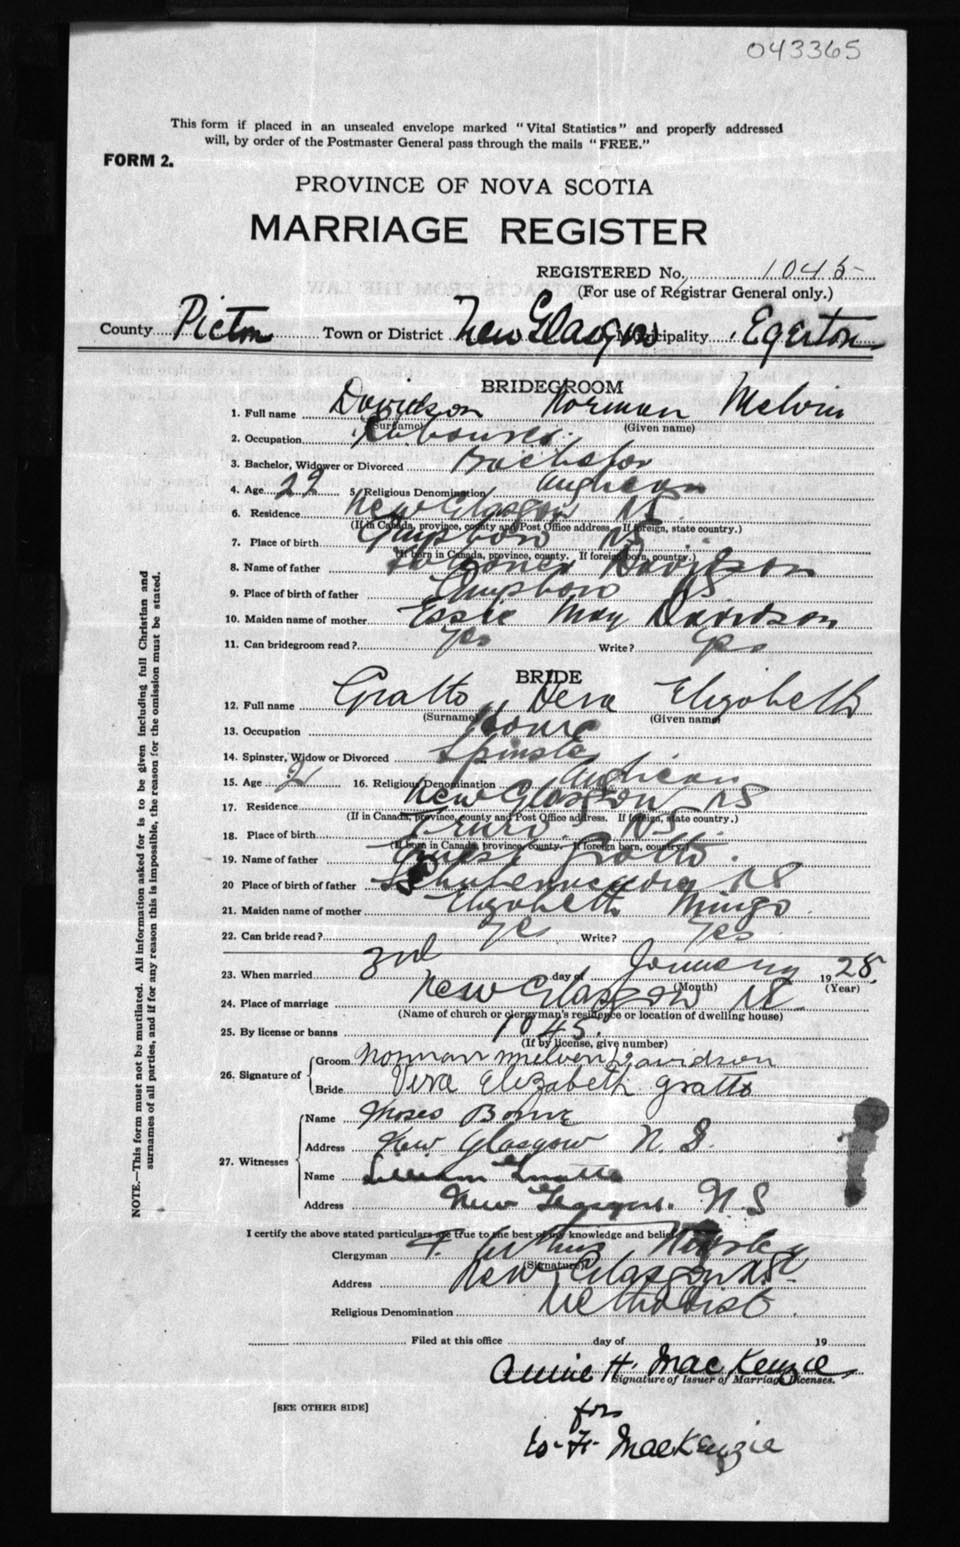 043365
This form if placed in an unsealed envelope marked "Vital Statistics" and properly addressed
will, by order of the Postmaster General pass through the mails "FREE."
FORM 2.
PROVINCE OF NOVA SCOTIA
MARRIAGE REGISTER
REGISTERED No. 1045
(For use of Registrar General only.)
County Pictou Town or District New Glasgow Municipality Egerton
BRIDEGROOM
1. Full name Davidson Norman Melvin
(Surname) (Given name)
2. Occupation Labourer
3. Bachelor, Widower or Divorced Bachelor
4. Age 22 5. Religious Denomination Anglican
6. Residence New Glasgow NS
(If in Canada, province, county and Post Office address. If foreign, state country.)
7. Place of birth Guysboro NS
(If born in Canada, province, county. If foreign born, country.)
8. Name of father Davidson
9. Place of birth of father Guysboro NS
10. Maiden name of mother Essie May Davidson
11. Can bridegroom read? Yes Write? Yes
BRIDE
12. Full name Gratto Vera Elizabeth
(Surname) (Given name)
13. Occupation Home
14. Spinster, Widow or Divorced Spinster
15. Age 16. Religious Denomination Anglican
17. Residence New Glasgow NS
(If in Canada, province, county and Post Office address. If foreign, state country.)
18. Place of birth Truro NS
(If born in Canada, province, county. If foreign born, country.)
19. Name of father Gratto
20 Place of birth of father NS
21. Maiden name of mother Elizabeth Mingo
22. Can bride read? Yes Write? Yes
23. When married 3rd day of January 1928
(Month) (Year)
24. Place of marriage New Glasgow NS
(Name of church or clergyman's residence or location of dwelling house)
25. By license or banns 1045.
(If by license, give number)
26. Signature of Groom Norman Melven Davidson
Bride Vera Elizabeth Gratto
27. Witnesses Name Moses
Address New Glasgow N. S.
Name Gratto
Address New Glasgow. N.S
I certify the above stated particulars are true to the best of my knowledge and belief.
Clergyman
(Signature)
Address New Glasgow NS
Religious Denomination Methodist.
Filed at this office day of 19
Annie H. MacKenzie
Signature of Issuer of Marriage Licenses.
[SEE OTHER SIDE]
for
MacKenzie
NOTE.—This form must not be mutilated. All information asked for is to be given including full Christian and
surnames of all parties, and if for any reason this is impossible, the reason for the omission must be stated.